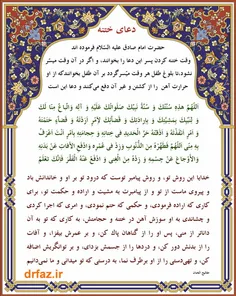 دعای ختنه
حضرت امام صادق علیه السّلام فرموده اند
وقت ختنه کردن پسر این دعا را بخوانند، و اگر در آن وقت میسّر
نشود،تا بلوغ طفل هر وقت میّسرگردد بر آن طفل بخوانندکه از او
حرارت آهن را از کشتن و غیر آن دفع می‌کند،و دعا این است:
اَللّهُمَّ هذِهِ سُنَّتُكَ وَ سُنَّةُ نَبِيِّكَ صَلَواتُكَ عَلَيْهِ وَ آلِهِ وَاتِّباعٌ مِنّا لَكَ
وَ لِنَبِيِّكَ بِمَشِيَّتِكَ وَ بِاِرادَتِكَ وَ قَضائِكَ لِاَمْرٍ اَرَدْتَهُ وَ قَضآءٍ حَتَمْتَهُ
وَ اَمْرٍ اَنْفَذْتَهُ وَ اَذَقْتَهُ حَرَّ الْحَديدِ فى خِتانِهِ وَ حِجامَتِهِ بِاَمْرٍ اَنْتَ اَعْرَفُ
بِهِ مِنّى اَللّهُمَّ فَطَهِّرْهُ مِنَ الذُّنُوبِ وَ زِدْ فى عُمْرِهِ وَ ادْفَعِ الْآفاتِ عَنْ بَدَنِهِ
وَ الْاَوْجاعَ عَنْ جِسْمِهِ وَ زِدْهُ مِنَ الْغِنى وَ ادْفَعْ عَنْهُ الْفَقْرَ فَاِنَّكَ تَعْلَمُ
خدایا این روش تو، و روش پیامبر توست که درود تو بر او و خاندانش باد
و پیروی ماست از تو و از پیامبرت به مشیت و اراده و حکمت تو، برای
کاری که اراده فرمودی، و حکمی که حتم نمودی، و امری که اجرا کردی
و چشاندی به او سوزش آهن در ختنه و حجامتش، به کاری که تو به آن
داناتر از منی، پس او را از گناهان پاک کن، و بر عمرش بیفزا، و آفات
را از بدنش دور کن، و دردها را از جسمش بزدای، و بر توانگریش اضافه
کن، و تهیدستی را از او برطرف نما، به درستی که تو میدانی و ما نمی‌دانیم
drfaz.ir